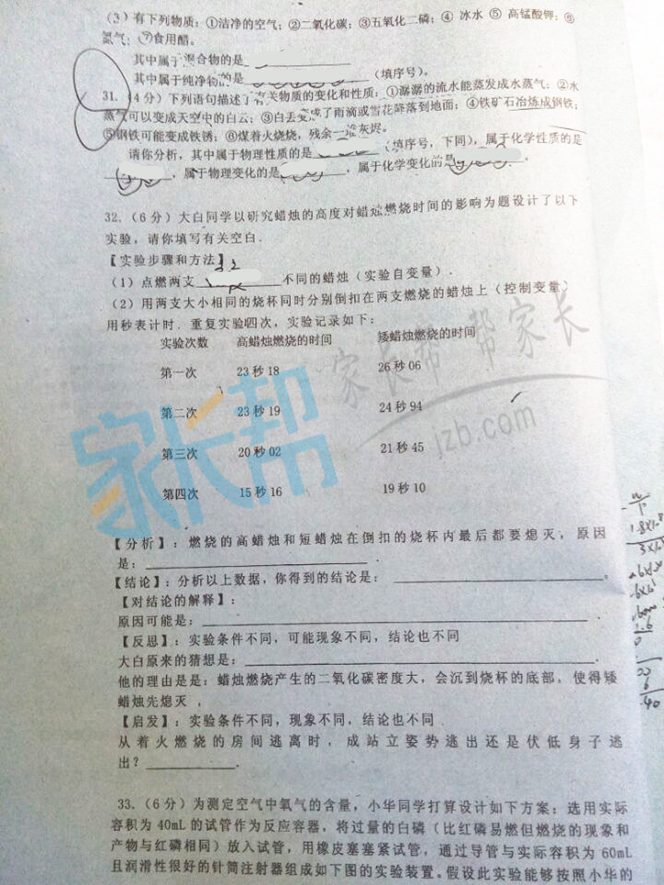 （3）有下列物质：①洁净的空气；②二氧化碳；③五氧化二磷；④ 冰水 ⑤ 高锰酸钾；⑥
氮气；⑦食用醋。
其中属于混合物的是
其中属于纯净物的是 （填序号）。
31.（4分）下列语句描述了有关物质的变化和性质：①潺潺的流水能蒸发成水蒸气；②水
蒸气可以变成天空中的白云；③白云变成了雨滴或雪花降落到地面；④铁矿石冶炼成钢铁；
⑤钢铁可能变成铁锈；⑥煤着火燃烧，残余一堆灰烬。
请你分析，其中属于物理性质的是 （填序号，下同），属于化学性质的是
，属于物理变化的是 ，属于化学变化的是
32.（6分）大白同学以研究蜡烛的高度对蜡烛燃烧时间的影响为题设计了以下
实验，请你填写有关空白.
【实验步骤和方法】
（1）点燃两支 不同的蜡烛（实验自变量）.
（2）用两支大小相同的烧杯同时分别倒扣在两支燃烧的蜡烛上（控制变量）
用秒表计时. 重复实验四次，实验记录如下：
实验次数 高蜡烛燃烧的时间 矮蜡烛燃烧的时间
第一次 23秒18 26秒06
第二次 23秒19 24秒94
第三次 20秒02 21秒45
第四次 15秒16 19秒10
家长帮
家长帮 帮家长
jzb.com
【分析】：燃烧的高蜡烛和短蜡烛在倒扣的烧杯内最后都要熄灭，原因
是：
【结论】：分析以上数据，你得到的结论是： 。
【对结论的解释】：
原因可能是： .
【反思】：实验条件不同，可能现象不同，结论也不同
大白原来的猜想是： .
他的理由是是：蜡烛燃烧产生的二氧化碳密度大，会沉到烧杯的底部，使得矮
蜡烛先熄灭，
【启发】：实验条件不同，现象不同，结论也不同.
从着火燃烧的房间逃离时，成站立姿势逃出还是伏低身子逃
出？ .
33.（6分）为测定空气中氧气的含量，小华同学打算设计如下方案：选用实际
容积为40mL的试管作为反应容器，将过量的白磷（比红磷易燃但燃烧的现象和
产物与红磷相同）放入试管，用橡皮塞塞紧试管，通过导管与实际容积为60mL
且润滑性很好的针筒注射器组成如下图的实验装置。假设此实验能够按照小华的